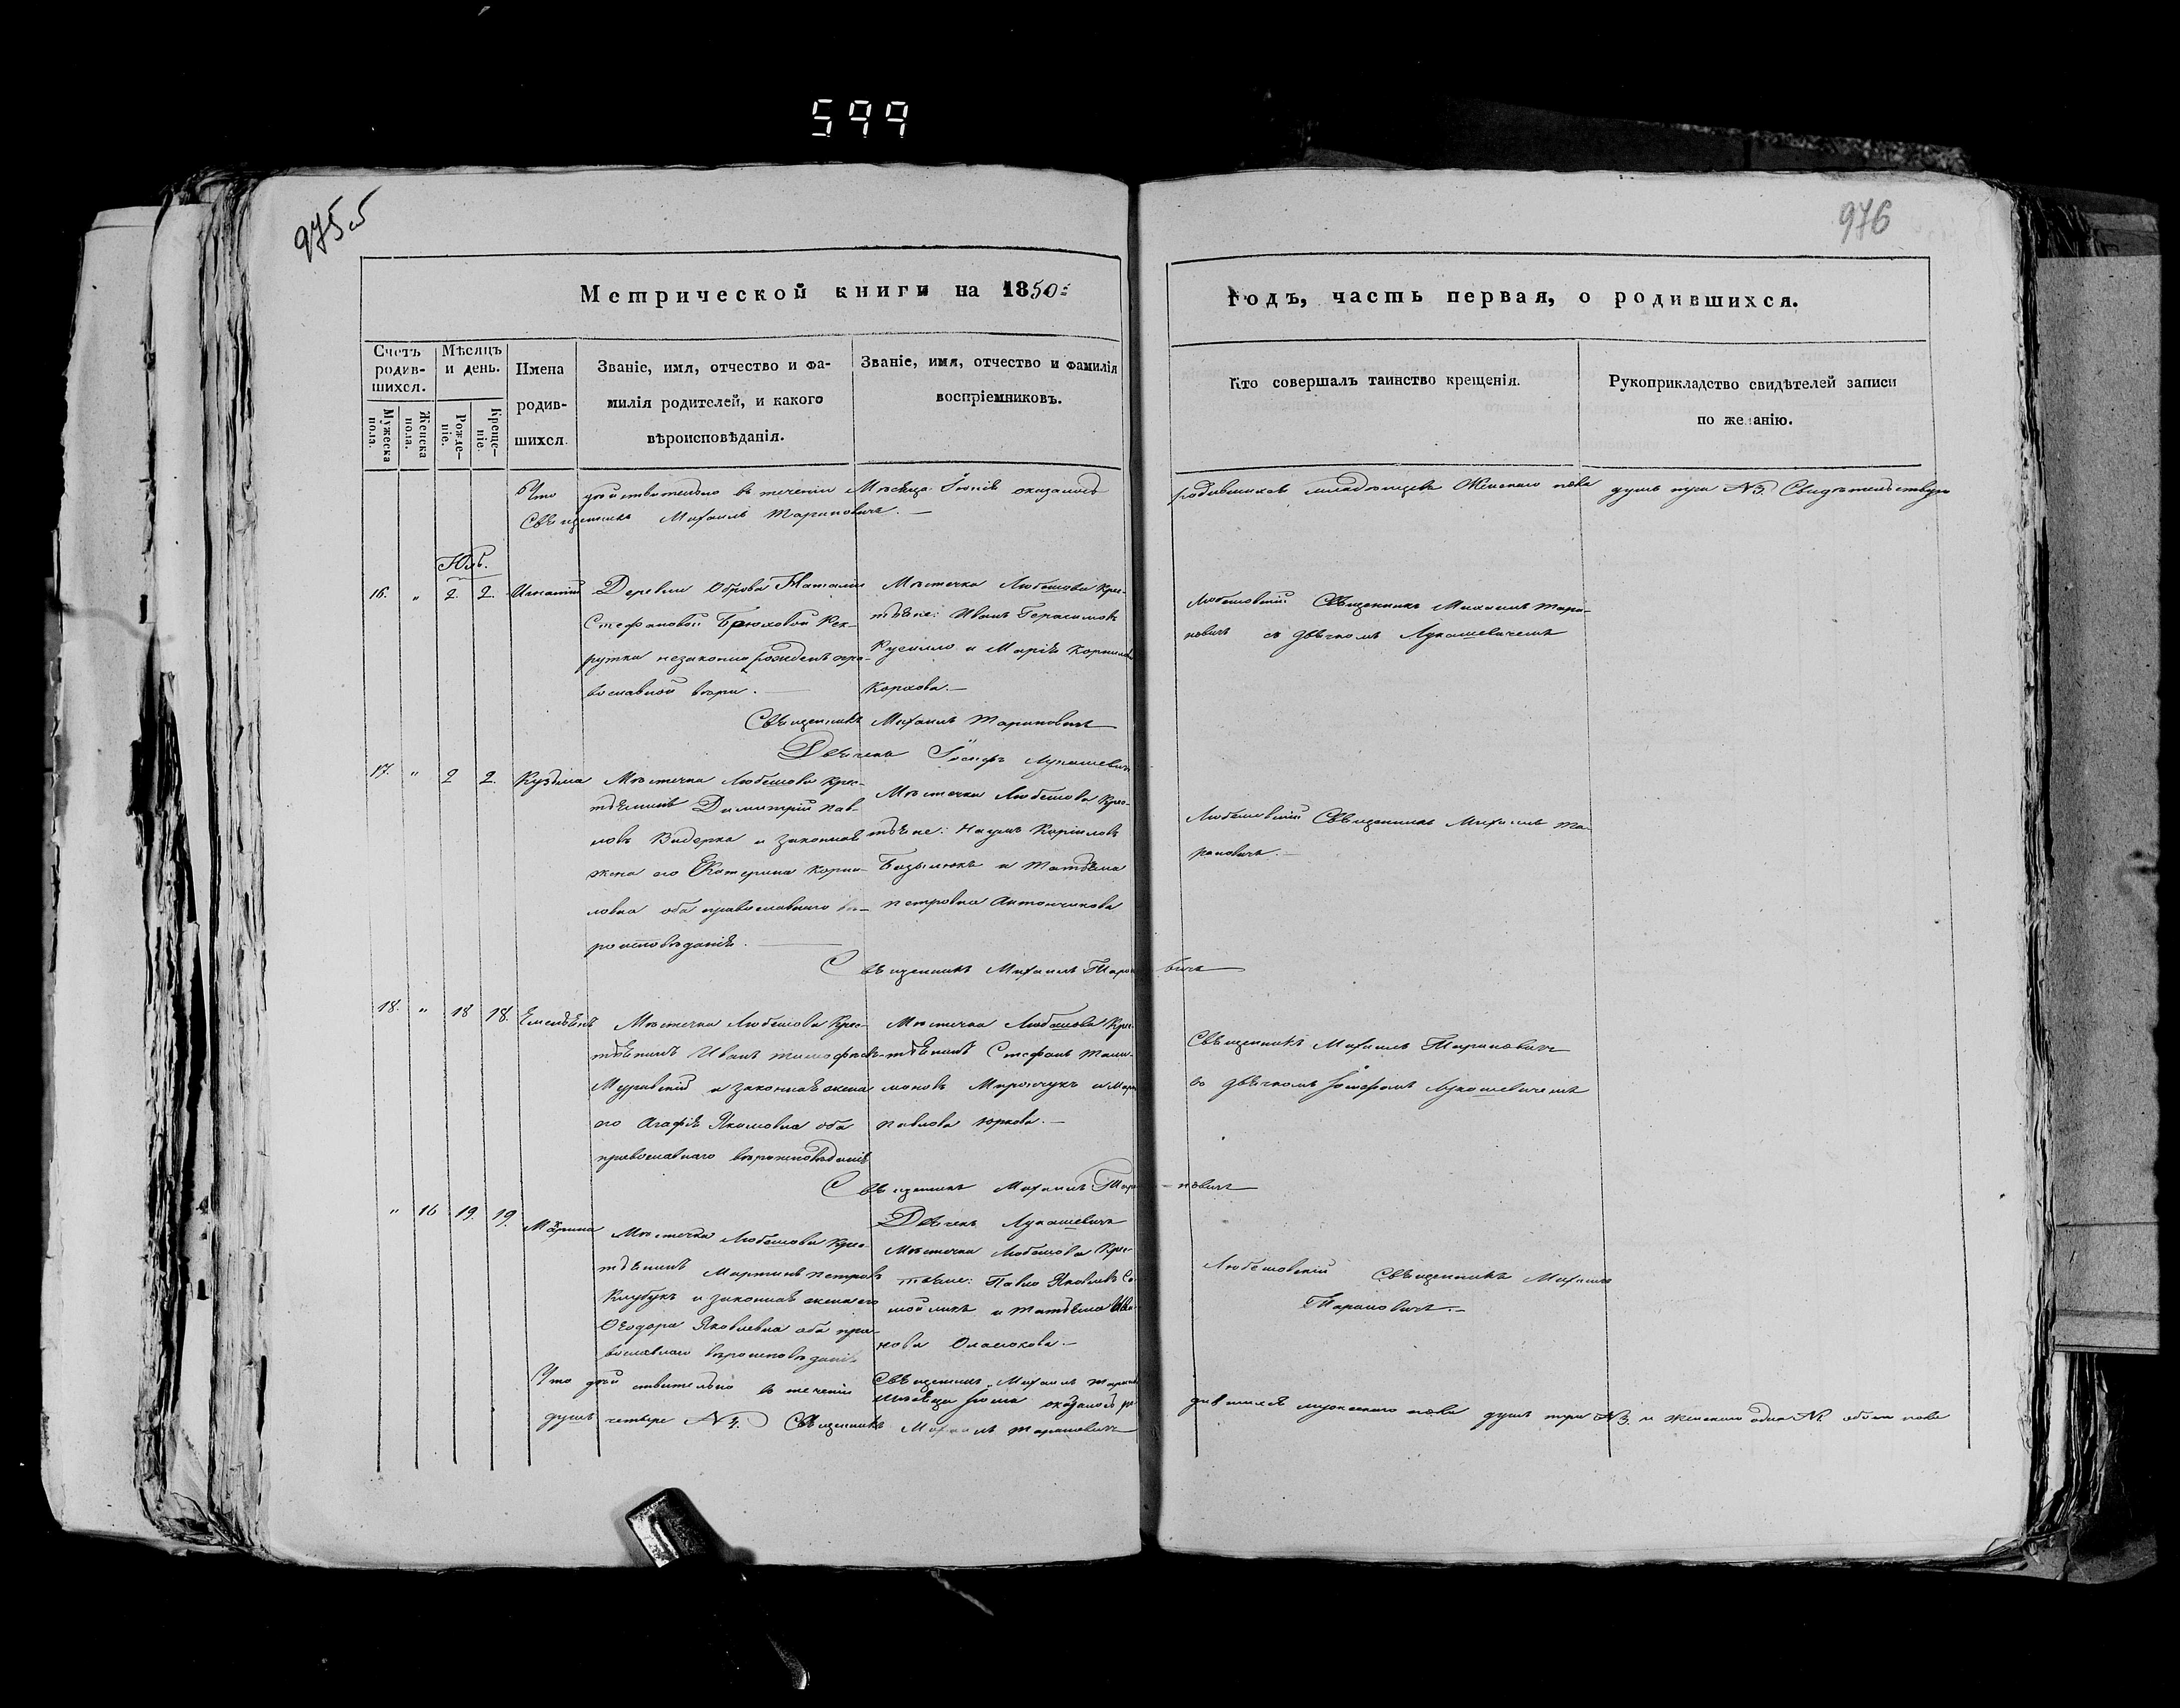 599
975об
976
Метрической книги на 1850:
Годъ, часть первая, о родившихся.
Счетъ родив-шихся.
Мужеска пола.
Женска пола.
Мѣсяцъ и день.
Рожде-ніе.
Креще-ніе.
Имена
родив-
шихся.
Званіе, имя, отчество и фа-
милія родителей, и какого
вѣроисповѣданія.
Званіе, имя, отчество и фамилія
воспріемниковъ.
Кто совершалъ таинство крещенія.
Рукоприкладство свидѣтелей записи
по желанію.
Что дѣйствительно въ теченіи Мѣсяца Іюнѣ оказалось родившихся младенцевъ Женскаго пола душъ три №3. Свидѣтельствую
Священникъ Михаилъ Тарановичъ.—
Юль.
16. " 2. 2. Игнатій
Деревни Оброва Наталіи
Стефановой Брюховой Рек-
рутки незаконно рожденъ пра-
вославной вѣры.—
Мѣстечка Любешова Крес-
тьяне: Иванъ Герасимовъ
Кусило и Марія Корнилова
Корхова.—
Любешовскій Священникъ Михаилъ Тара-
новичъ съ дьячкомъ Лукашевичемъ
Священникъ Михаилъ Тарановичъ
Дьячекъ Іосифъ Лукашевичъ
17. " 2 2. Кузьма
Мѣстечка Любешова Крес-
тьянинъ Димитрій Пав-
ловъ Видерка и законная
жена его Екатерина Корни-
лова оба православнаго вѣ-
роисповѣданія.—
Мѣстечка Любешова Крес-
тьяне: Наумъ Кириловъ
Базылюкъ и Татьяна
Петровна Антончикова
Любешовскій Священникъ Михаилъ Та-
рановичъ.—
Священникъ Михаилъ Тарановичъ
18. " 18 18. Емельянъ
Мѣстечка Любешова Крес-
тьянинъ Иванъ Тимофѣевъ
Муравскій и законная жена
его Агафія Якимовна оба
православнаго вѣроисповѣданія
Мѣстечка Любашова Крес-
тьянинъ Стефанъ
Мирончукъ и
Павлова Юркова.—
Священникъ Михаилъ Тарановичъ
со дьячкомъ Іосифомъ Лукашевичемъ
Священникъ Михаилъ Тарановичъ
Дьячекъ Лукашевичъ
" 16 19. 19. Марина
Мѣстечка Любешова Крес-
тьянинъ Мартинъ Петровъ
Клубукъ и законная жена его
Ѳеодора Яковлевна оба пра-
вославнаго вѣроисповѣданія
Мѣстечка Любашова Крес-
тьяне: Павло Яковлевъ Са-
мойликъ и Татьяна Ива-
нова
Любешовскій Священникъ Михаилъ
Тарановичъ.—
Священникъ Михаилъ Таранович
Что дѣйствительно въ теченіи мѣсяца Іюла оказалось родившихся мужескаго пола душъ три №3. и женскаго одна №1. обоего пола
душъ четыре №4. Священникъ Михаилъ Тарановичъ